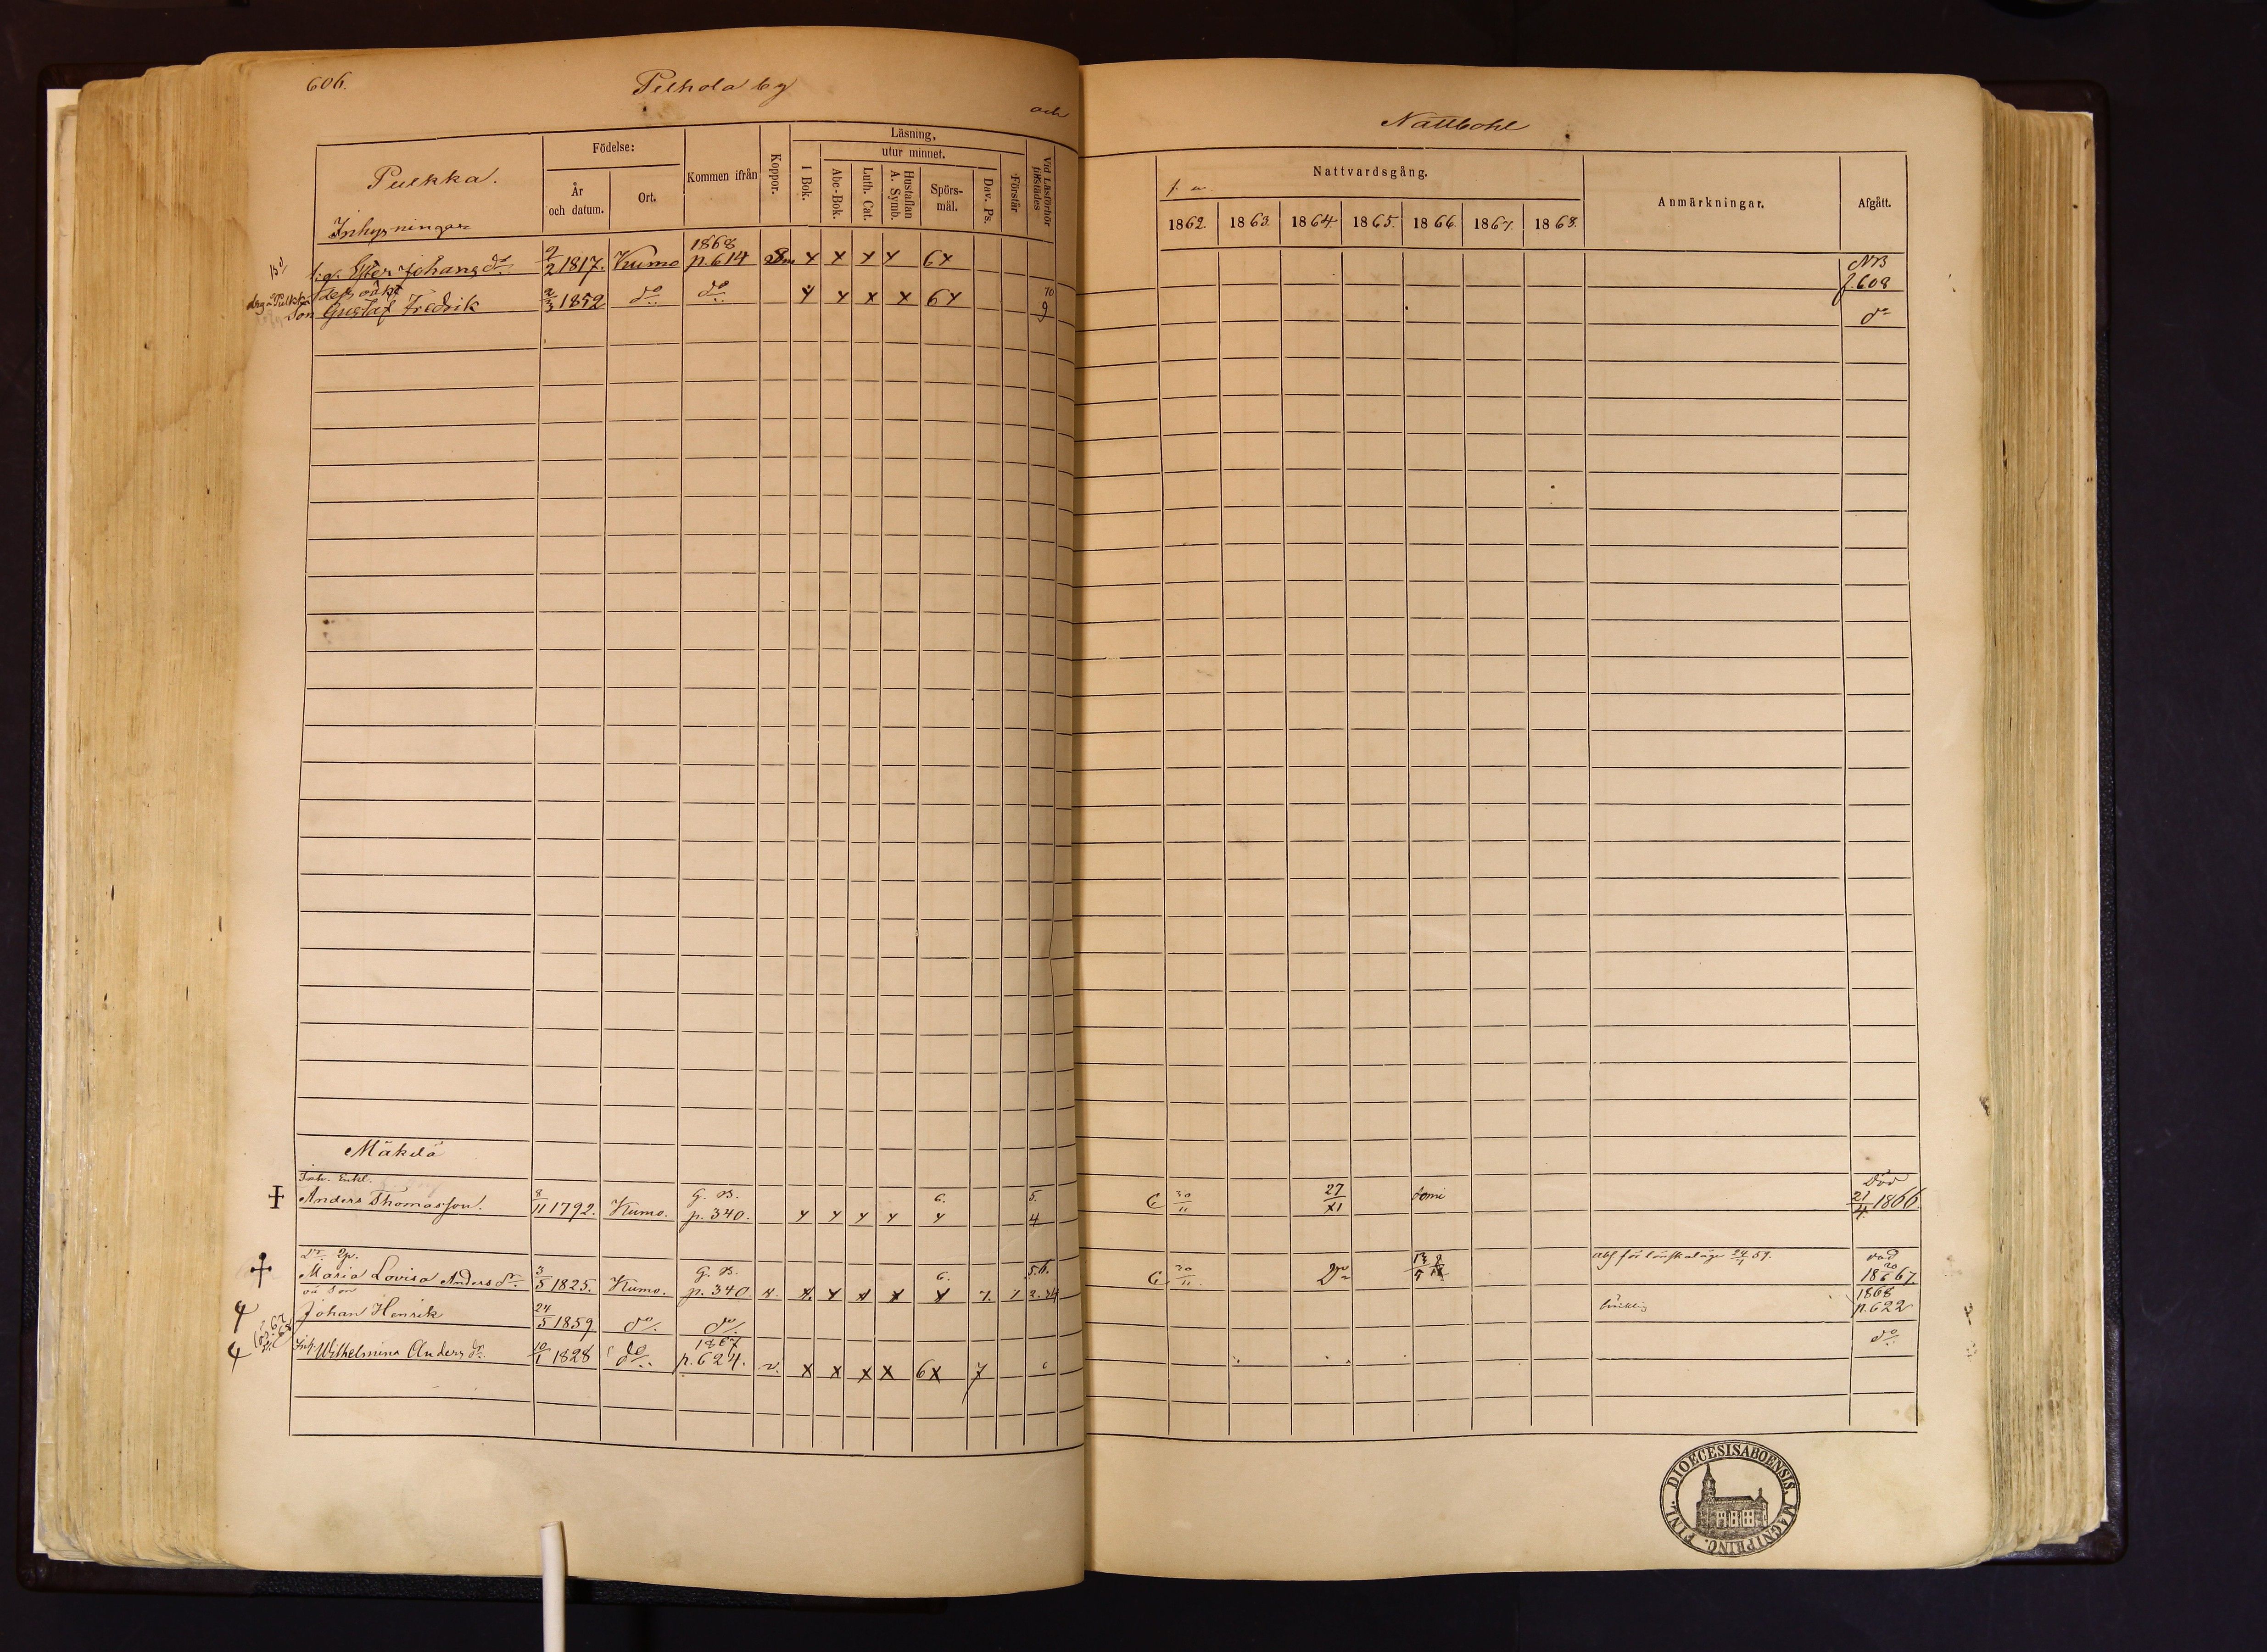 606.
Peihola by
och
Nättbohl
Pukka.
Inhysningar
Födelse:
År och datum.
Ort.
Kommen ifrån
Koppor.
Läsning,
I Bok.
utur minnet.
Abc-Bok.
Luth. Cat.
Hustaflan A. Symb.
Spörs-mål.
Dav. Ps.
Förstår
Vid Läsförhör tillstädes
Nattvardsgång.
1862. 1863. 1864. 1865. 1866. 1867. 1868.
Anmärkningar.
Afgått.
Ester Johans dr 2/2 1817. Kumo 1868 p. 614 x x x x 6 x NB p. 608
Son Gustaf Fredrik 2/3 1852 do do x x x x 6 x 10 9 do
Mäkelä
Inh. Enkl.
Anders Thomasson. 8/11 1792. Kumo. G. B. p. 340. x x x x 6. x 5. 4 C 30/11 27/XI domi Död 21/4 1866.
Maria Lovisa Anders dr. 3/5 1825. Kumo. G. B. p. 340 x. x x x 6. x 7. 1 5.6. 2.34 C 30/11 Do 13/5 abs för lönskaläge 24/1 59. död 20/6 1867
oä Son
Johan Henrik 24/5 1859 do. do. 1868 p. 622
Inh. Wilhelmina Anders dr. 10/1 1828 do. 1867 p. 624. v. x x x x 6 x 7 do
DIOECESIS ABOENSIS. MAGNI PRINC. FINL.